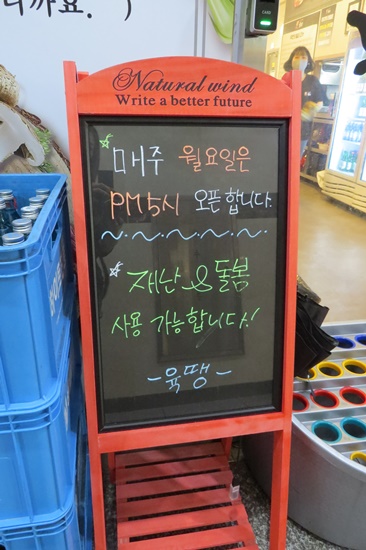 니까요."
Natural wind
Write a better future
매주 월요일은
PM 5시 오픈합니다.
재난&돌봄
사용 가능합니다!
-육땡-